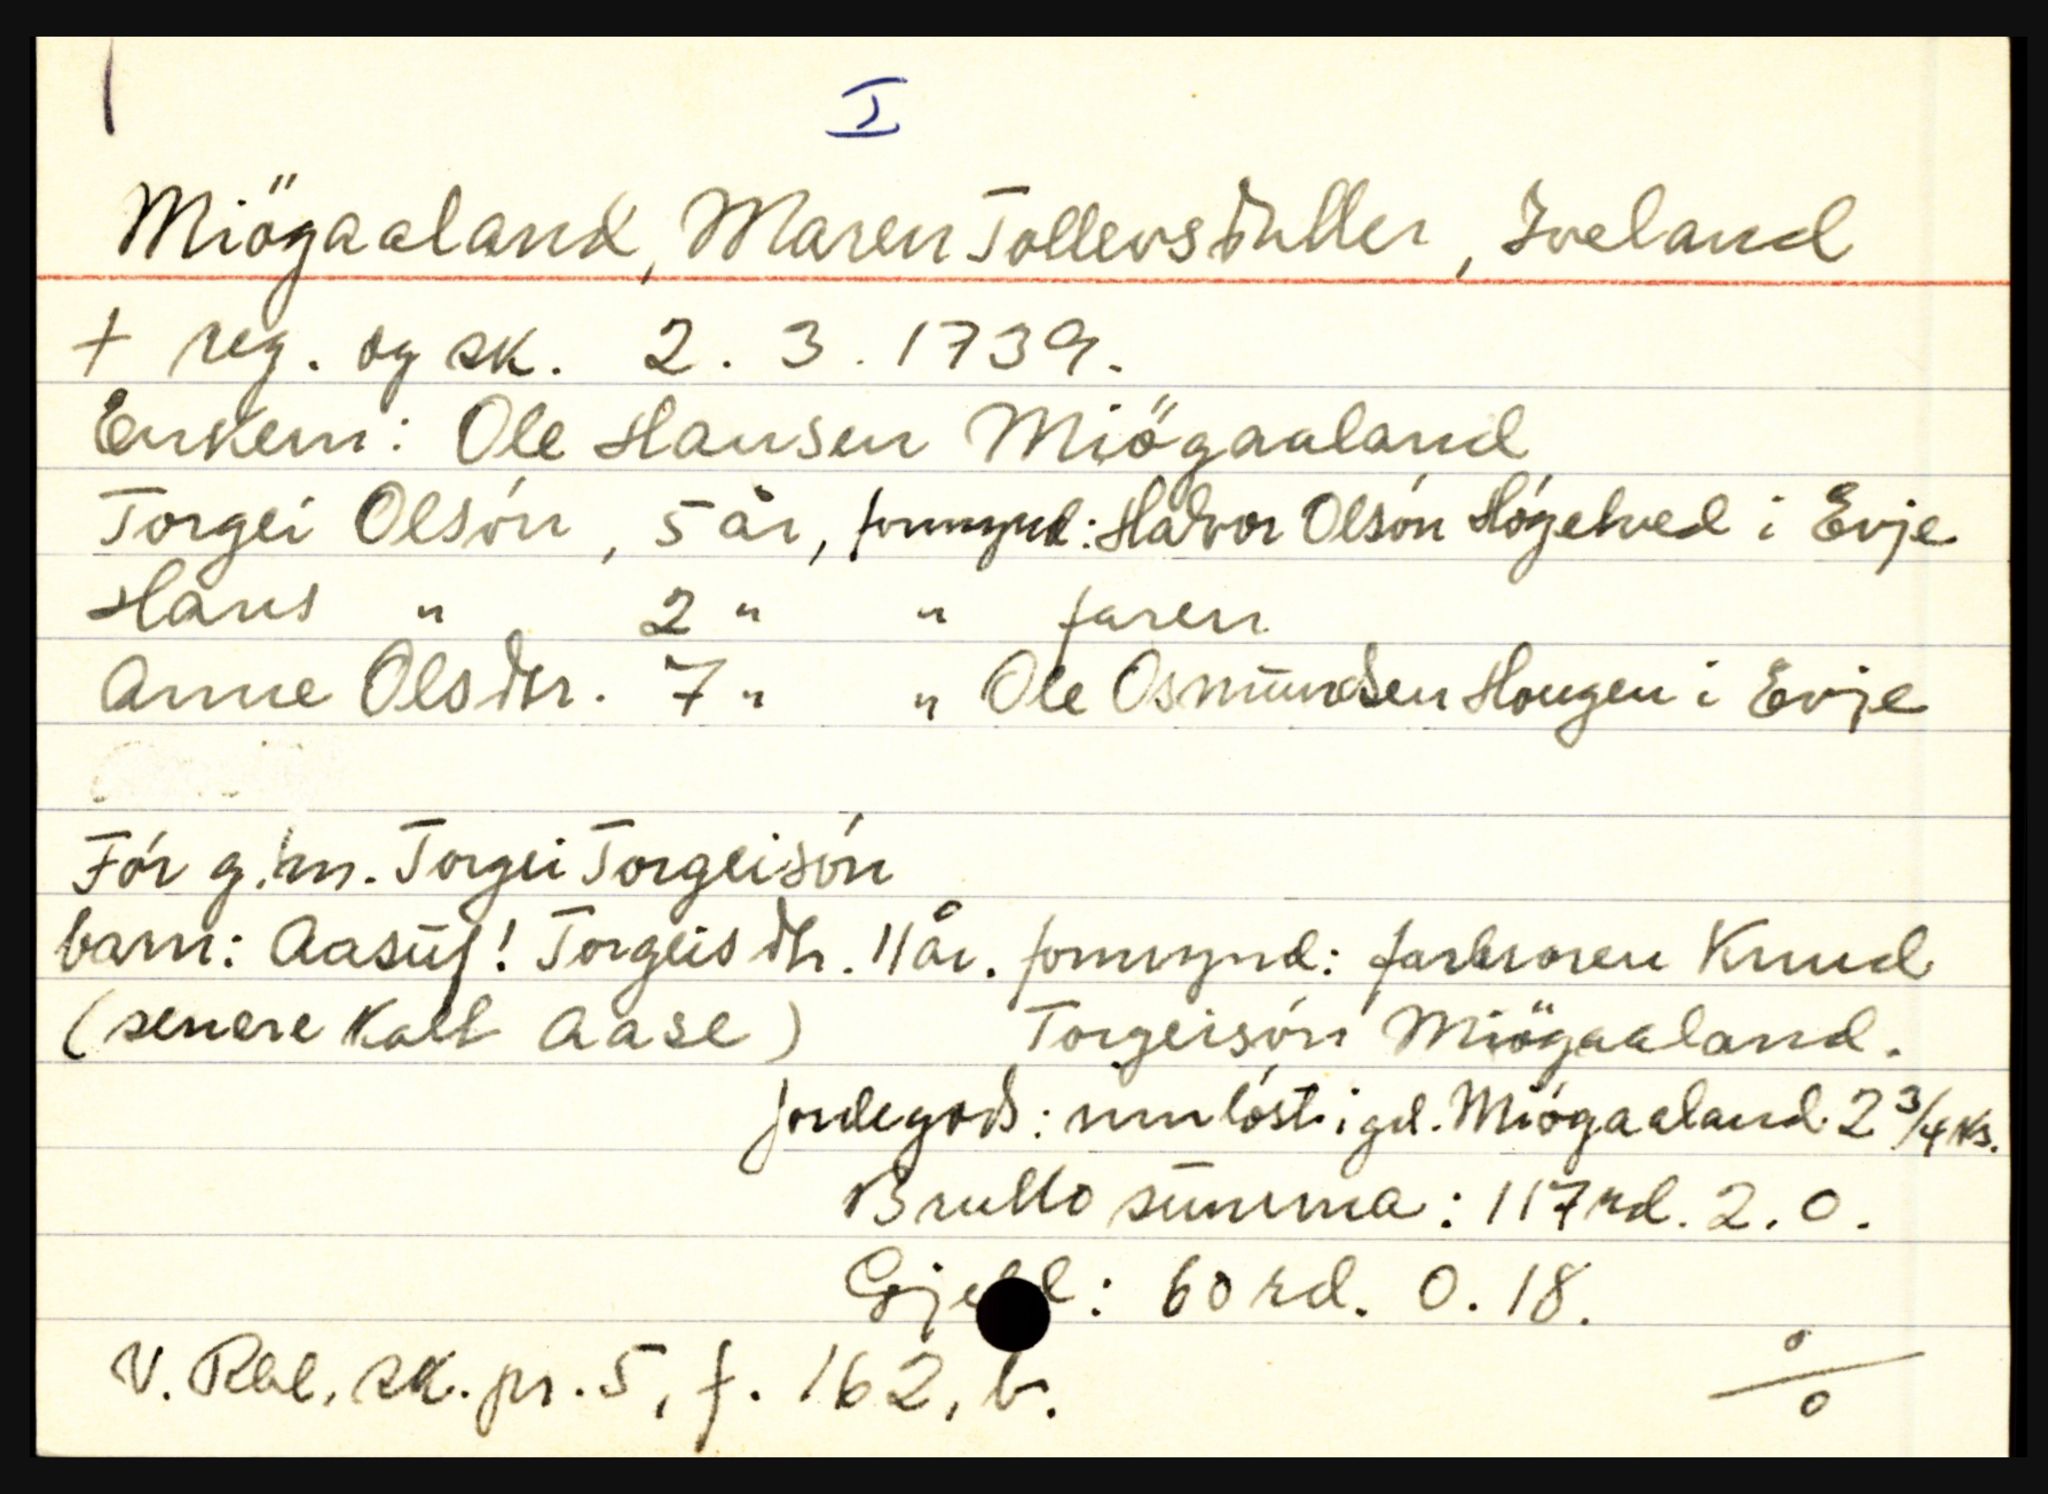 I
Miögaaland, Maren Tollevsdatter, Iveland
+ reg. og sk. 2. 3. 1739.
Enkem: Ole Hansen Miögaaland
Torgei Olsón, 5 år, formynd: Halvor Olsón Högetved i Evje
Hans " 2 " " faren
Anne Olsdtr. 7 " " Ole Osmundsen Hougen i Evje
Fór g.m. Torgei Torgeisón
barn: Aasuf! Torgeisdtr. 11 år. formynd: farbroren Knud
(senere kalt Aase) Torgeisón Miögaaland.
Jordegods: innlöst i gd. Miógaaland 2 3/4 ks.
Brutto summa: 117 rd. 2. 0.
Gjeld: 60 rd. 0. 18.
V. Rbl. sk. pr. 5, f. 162, b.